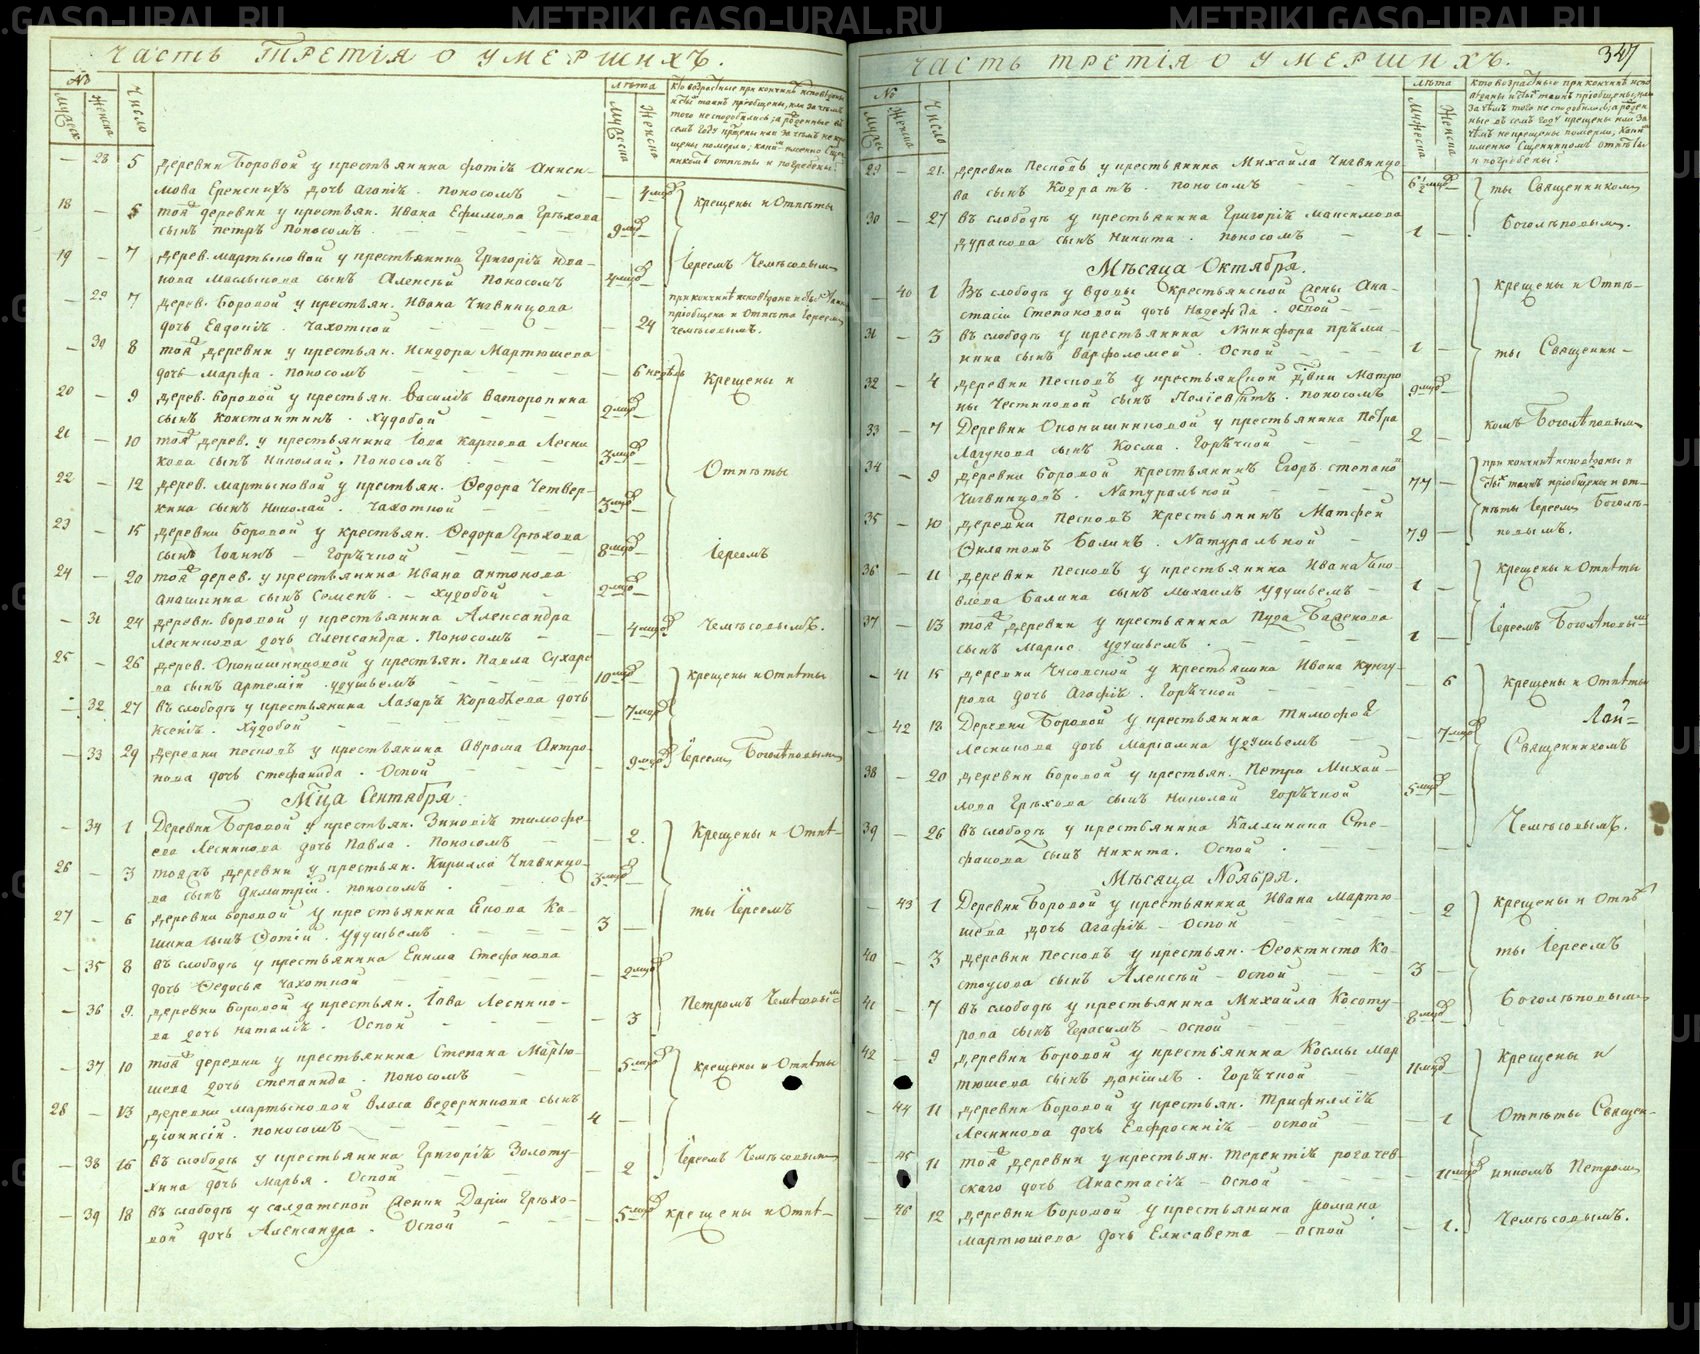 METRIKI.GASO-URAL.RU
METRIKI.GASO-URAL.RU
ЧАСТЬ ТРЕТІЯ О УМЕРШИХЪ.
№
Мужеск
Женска
Число
лѣта
Мужеска
Женска
Кто возрастные при кончинѣ исповѣданы
28 5 деревни Боровой у крестьянина Фотіѣ Аниси-
мова Еренскихъ дочь Агапіѣ. поносомъ 4 мцд
крещены и Отпѣты
18 5 тоя деревни у крестьян. Ивана Ефимова Грѣхова
сынъ петръ поносомъ. 9 мцд
19 7 дерев. мартыновой у крестьянина Григоріѣ Ива-
нова Маслынова сынъ Алексѣй поносомъ 4 мцд
Іереемъ Чемѣсовымъ
29 7 дерев. Боровой у крестьян. Ивана Чигвинцова
дочь Евдокіѣ. Чахоткой 24
пріобщена и Отпѣта Іереемъ
Чемѣсовымъ.
30 8 тоя деревни у крестьян. Исидора Мартюшева
дочь Марфа. поносомъ 6 недѣль
Крещены и
20 9 дерев. боровой у крестьян. Василіѣ
сынъ константинъ. худобой 2 мцд
21 10 тоя дерев. у крестьянина Іова Карпова Лесни
кова сынъ Николай. Поносомъ 3 мцд
Отпѣты
22 12 дерев. мартыновой у крестьян. Ѳедора Четвер-
кина сынъ Николай. Чахоткой 3 мцд
23 15 деревни боровой у крестьян. Ѳедора Грѣхова
сынъ Іоаннъ – Горѣчкой 8 мцд
Іереемъ
24 20 тоя дерев. у крестьянина Ивана Антонова
Апашкина сынъ Семенъ. – худобой 2 мцд
31 24 деревн. боровой у крестьянина Александра
Лесникова дочь Александра. Поносомъ 4 мцд
Чемѣсовымъ.
25 26 дерев. у крестьян. Павла Сухаре
ва сынъ Артемій. удушьемъ 10 мцд
крещены и Отпѣты
32 27 въ слободѣ у крестьянина Лазарѣ Корабѣева дочь
Ксеніѣ. Худобой 7 мцд
33 29 деревни песковъ у крестьянина Аврама Антро-
пова дочь стефанида. Оспой 9 мцд
Іереемъ Боголѣповымъ
Мца Сентября.
34 1 Деревни Боровой у крестьян. Зиновіѣ тимофе-
ева Лесникова дочь Павла. Поносомъ 2.
Крещены и Отпѣ-
26 3 тояжъ деревни у крестьян. Кирилла Чигвинцо-
ва сынъ Димитрій. поносомъ 3 мцд
27 6 деревни боровой у крестьянина Енова Ка-
шина сынъ Фотій. удушьемъ 3
ты Іереемъ
35 8 въ слободѣ у крестьянина Екима Стефанова
дочь Ѳедосья чахоткой 2 мцд
36 9. деревни боровой у крестьян. Іова Леснико-
ва дочь Наталіѣ. Оспой 3
Петромъ Чемѣсовы
37 10 тоя деревни у крестьянина Степана Мартю-
шева дочь степанида. поносомъ 5 мцд
крещены и Отпѣты
28 13 деревни мартыновой Власа Ведерникова сынъ
діонисій. поносомъ 4
38 16 въ слободѣ у крестьянина Григоріѣ Золоту-
хина дочь Марья. Оспой 2
Іереемъ Чемѣсовымъ
39 18 въ слободѣ у салдатской женки Даріи Грѣхо-
вой дочь Александра. Оспой 5 мцд
крещены и Отпѣ-
ЧАСТЬ ТРЕТІЯ О УМЕРШИХЪ.
347
№
Мужес
Женска
Число
лѣта
Мужеска
Женска
Кто возрастные при кончинѣ испо
29 21. деревни Песковъ у крестьянина Михаила Чигвинцо
ва сынъ Кодратъ. поносомъ 6½ мцд
ты Священникомъ
30 27 въ слободѣ у крестьянина Григоріѣ Максимова
дуракова сынъ Никита. поносомъ 1
Боголѣповымъ.
Мѣсяца Октября.
40 1 Въ слободѣ у вдовы крестьянской жены Ана-
стасіи Степановой дочь Надежда. оспой
крещены и Отпѣ-
31 3 въ слободѣ у крестьянина Никифора
нина сынъ Варфоломей. Оспой 1
ты Священни-
32 4 деревни Песковъ у крестьянской дѣвки Матро
ны Честиковой сынъ поносомъ 9 мцд
33 7 Деревни у крестьянина Петра
Лагунова сынъ Косма. Горѣчкой 2
комъ Боголѣповымъ
34 9 деревни Боровой крестьянинъ Егоръ степано
Чигвинцовъ. Натуральной 77
при кончинѣ исповѣданы и
35 10 деревни Песковъ крестьянинъ Матфей
Филатовъ Балинъ. Натуральной 79
пѣты Іереемъ Боголѣ-
повымъ.
36 11 деревни Песковъ у крестьянина Ивана
Балина сынъ Михаилъ удушьемъ 1
Крещены и Отпѣты
37 13 тоя деревни у крестьянина Пуда Баженова
сынъ Марко. удушьемъ. 1
Іереемъ Боголѣповы
41 15 деревни Часовской у крестьянина Ивана Кунгу-
рова дочь Агафіѣ. Горѣчкой 6
Крещены и Отпѣты
42 18 Деревни Боровой у крестьянина тимофѣй
Лесникова дочь Маріамна удушьемъ 7 мцд
Священникомъ
38 20 деревни боровой у крестьян. Петра Михай-
лова Грѣхова сынъ Николай Горѣчкой 5 мцд
39 26 въ слободѣ у крестьянина Каллиника Сте-
фанова сынъ Никита. Оспой.
Чемѣсовымъ.
Мѣсяца Ноября.
43 1 Деревни Боровой у крестьянина Ивана Мартю-
шева дочь Агафіѣ – оспой 2
крещены и Отпѣ
40 3 деревни песковъ у крестьян. Ѳеоктиста Ко-
стоусова сынъ Алексѣй – оспой 3
ты Іереемъ
41 7 въ слободѣ у крестьянина Михаила Косоту-
рова сынъ Герасимъ – оспой 8 мцд
Боголѣповымъ
42 9 деревни боровой у крестьянина Космы Мар
тюшева сынъ даніилъ. Горѣчкой 11 мцд
крещены и
44 11 деревни боровой у крестьян. Трифилліѣ
Лесникова дочь Евфросиніѣ – оспой 1
Отпѣты Священ-
45 11 тоя деревни у крестьян. терентіѣ рогачев-
скаго дочь Анастасіѣ – оспой 11 мцд
никомъ Петромъ
46 12 деревни Боровой у крестьянина романа
Мартюшева дочь Елисавета – оспой 1.
Чемѣсовымъ.